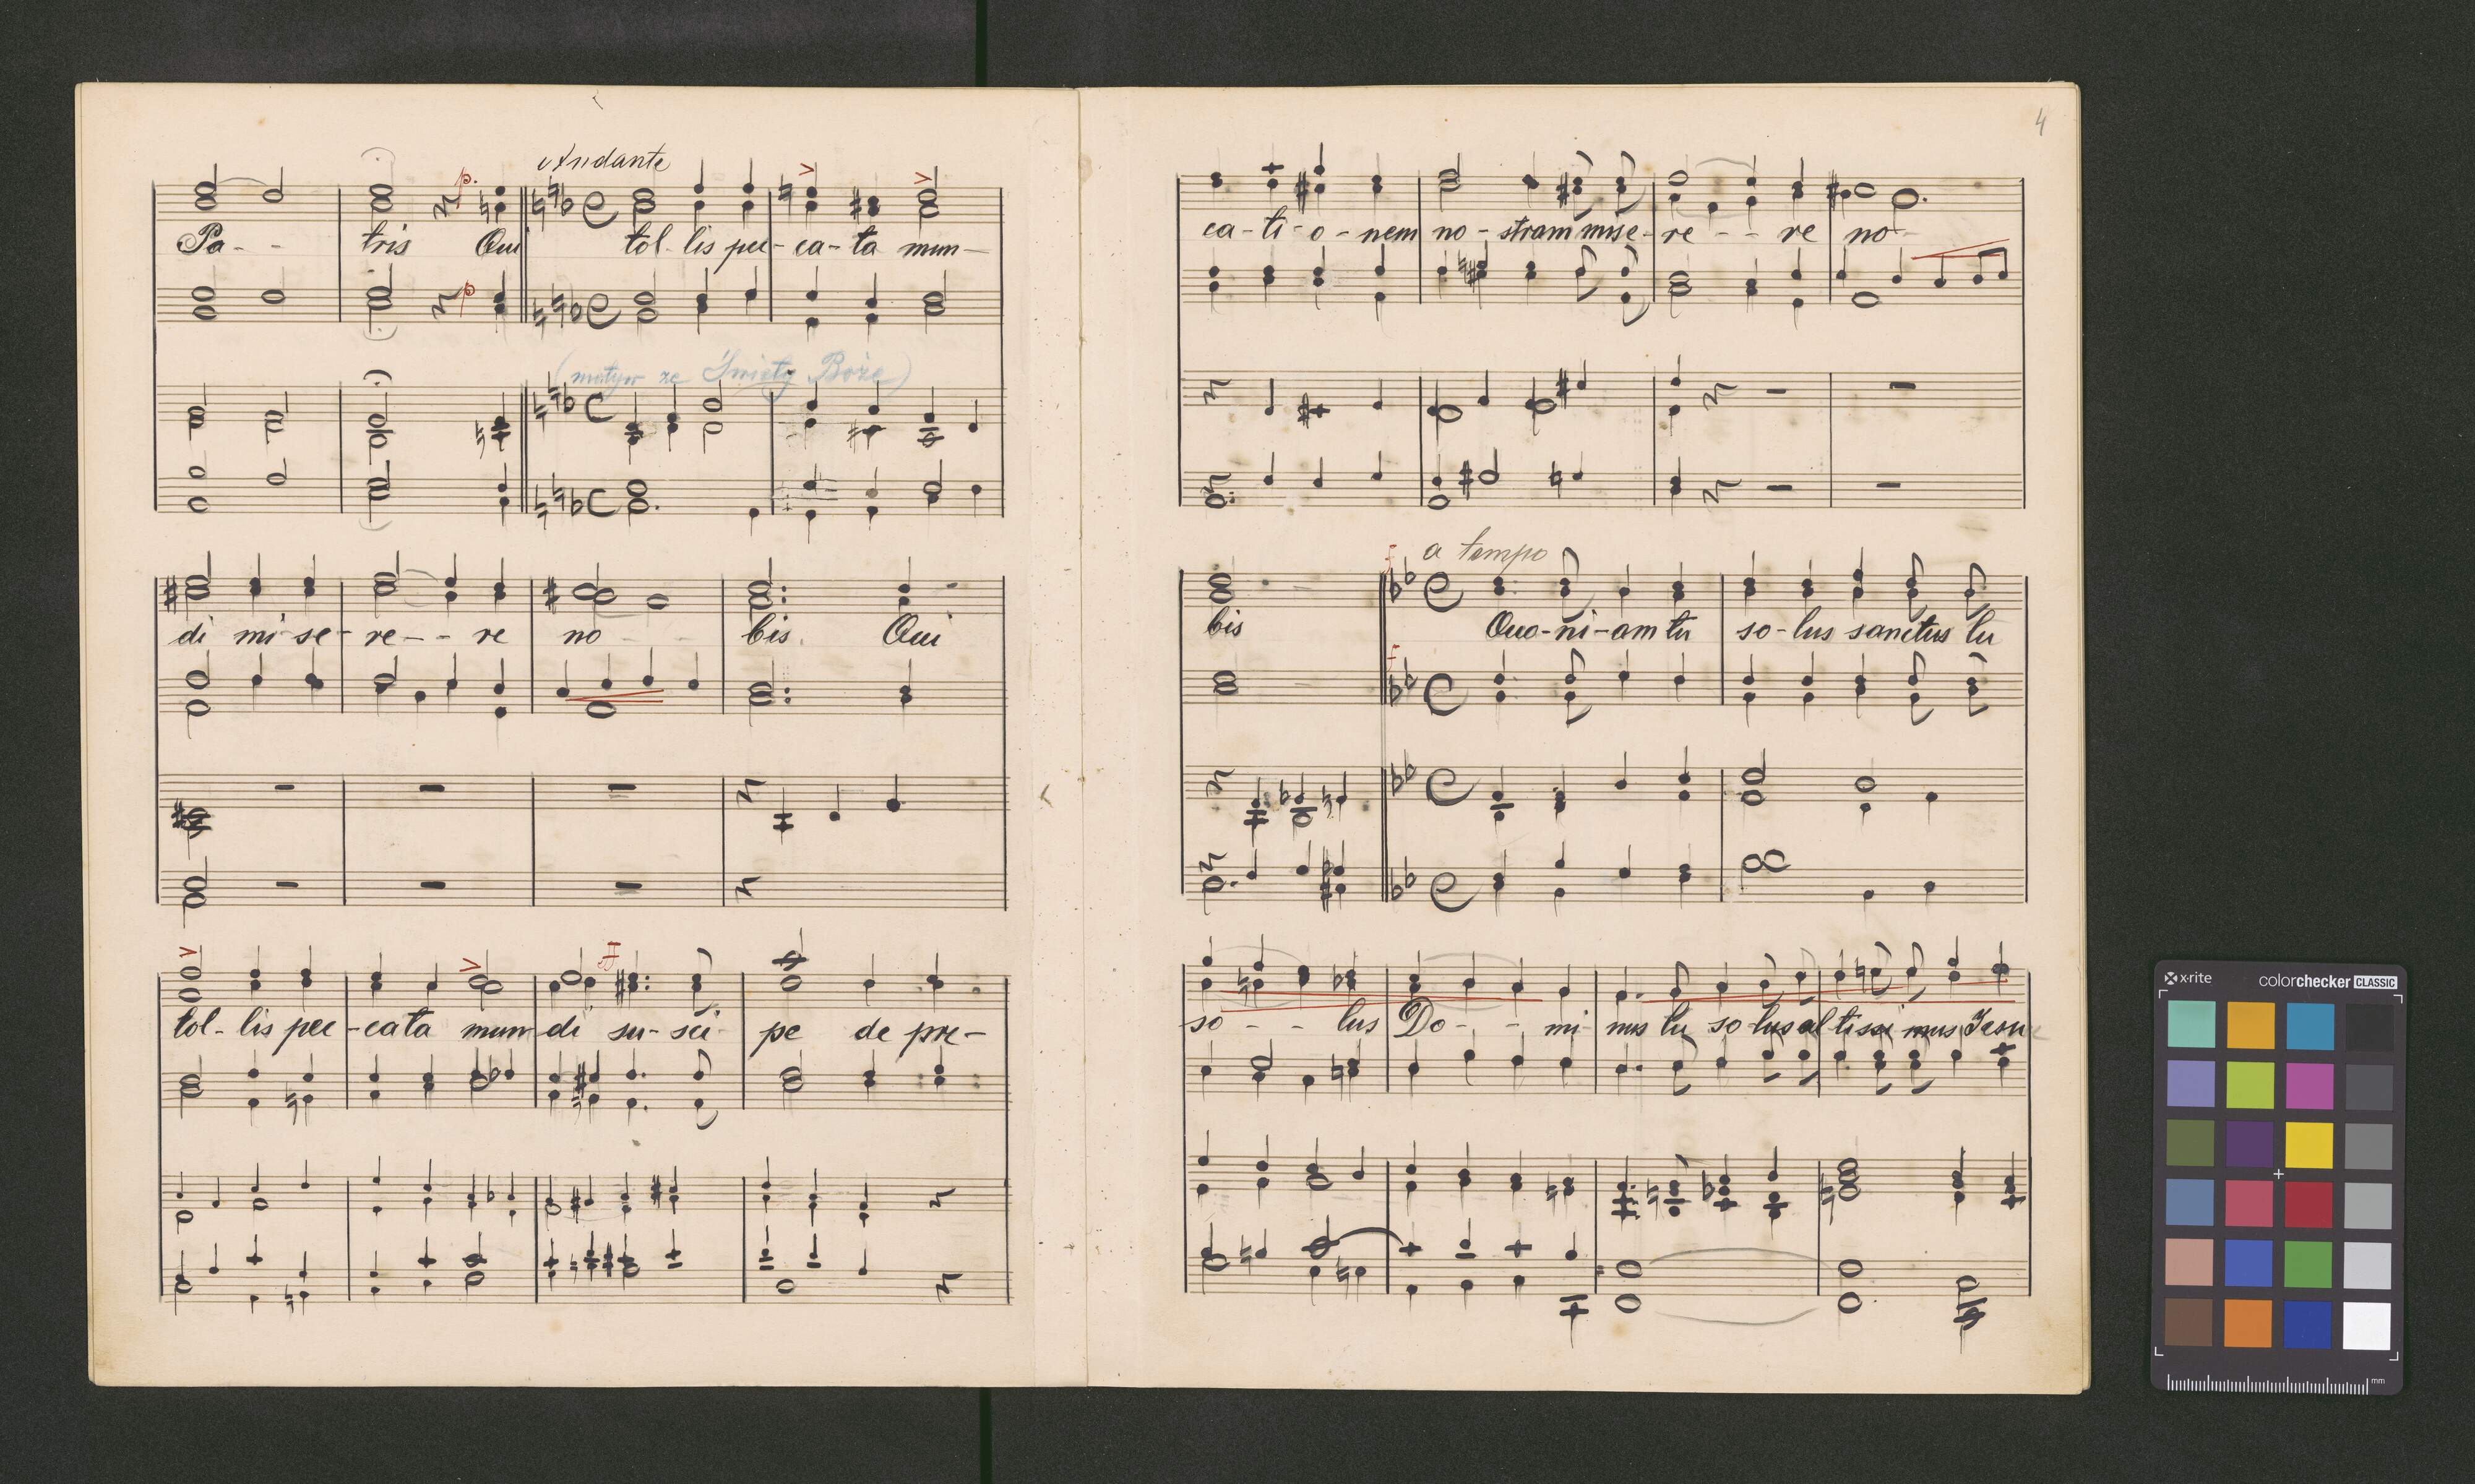 Andante
p.
Pa - - tris Qui tol - lis pec - ca - ta mun -
p
(motyw ze Święty Boże)
di mi - se - re - - re no - - bis. Qui
ff
tol - lis pec - cata mun di su - sci - pe de pre -
4
ca - ti - o - nem no - stram mise - re - - re no -
f a tempo
bis Quo - ni - am tu so - lus sanctus tu
f
so - - - lus Do - - mi - nus tu so lus al tissi mus Jesu
x-rite colorchecker CLASSIC
mm